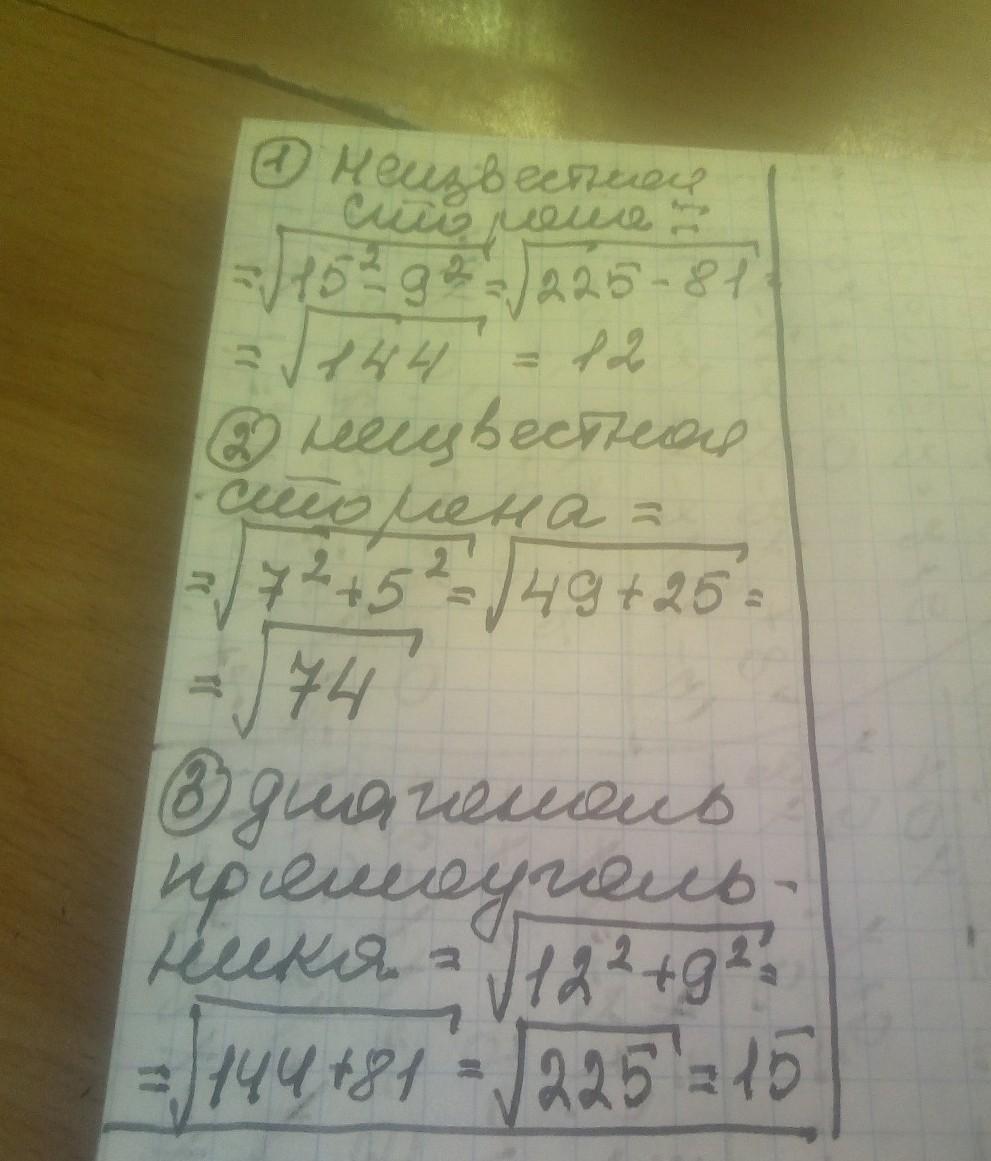 ① Неизвестная
сторона =
= √15² - 9² = √225 - 81 =
= √144 = 12
② Неизвестная
сторона =
= √7² + 5² = √49 + 25 =
= √74
③ Диагональ
прямоуголь-
ника = √12² + 9² =
= √144 + 81 = √225 = 15